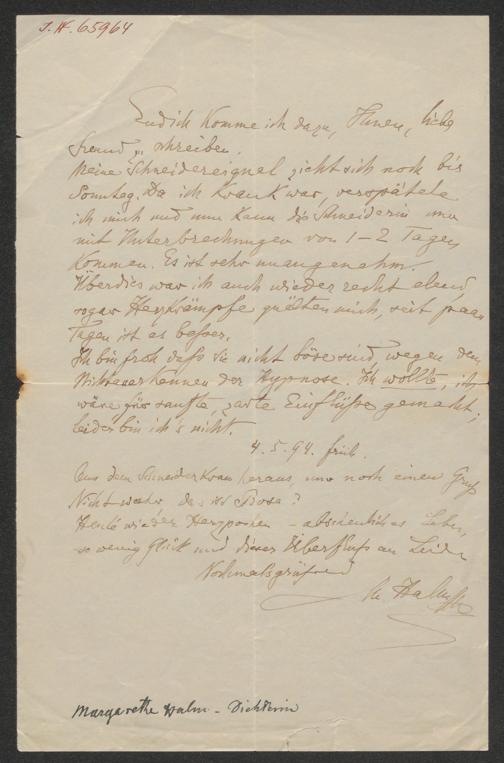 J.N. 65964
Endlich komme ich dazu, Ihnen, liebe
Freund zu schreiben.
Meine Schneidereiquel zieht sich noch bis
Sonntag. Da ich krank war, verspätete
ich mich und nun kann die Schneiderin nur
mit Unterbrechungen von 1-2 Tagen
kommen. Es ist sehr unangenehm.
Überdies war ich auch wieder recht elend,
sogar Herzkrämpfe quälten mich, seit paar
Tagen ist es besser.
Ich bin froh daß Sie nicht böse sind, wegen dem
der Hypnose. Ich wollte, ich
wäre für sanfte, zarte Einflüße gemacht;
leider bin ich's nicht.
4.5.94. früh.
Aus dem Schneiderkram heraus, nur noch einen Gruß
Nicht wahr, das ist Prosa?
Heute wieder Herzpochen - abscheuliches Leben,
so wenig Glück und dieser Überfluß an Leiden
Nochmals grüßend
M Halm
Margarethe Halm - Dichterin